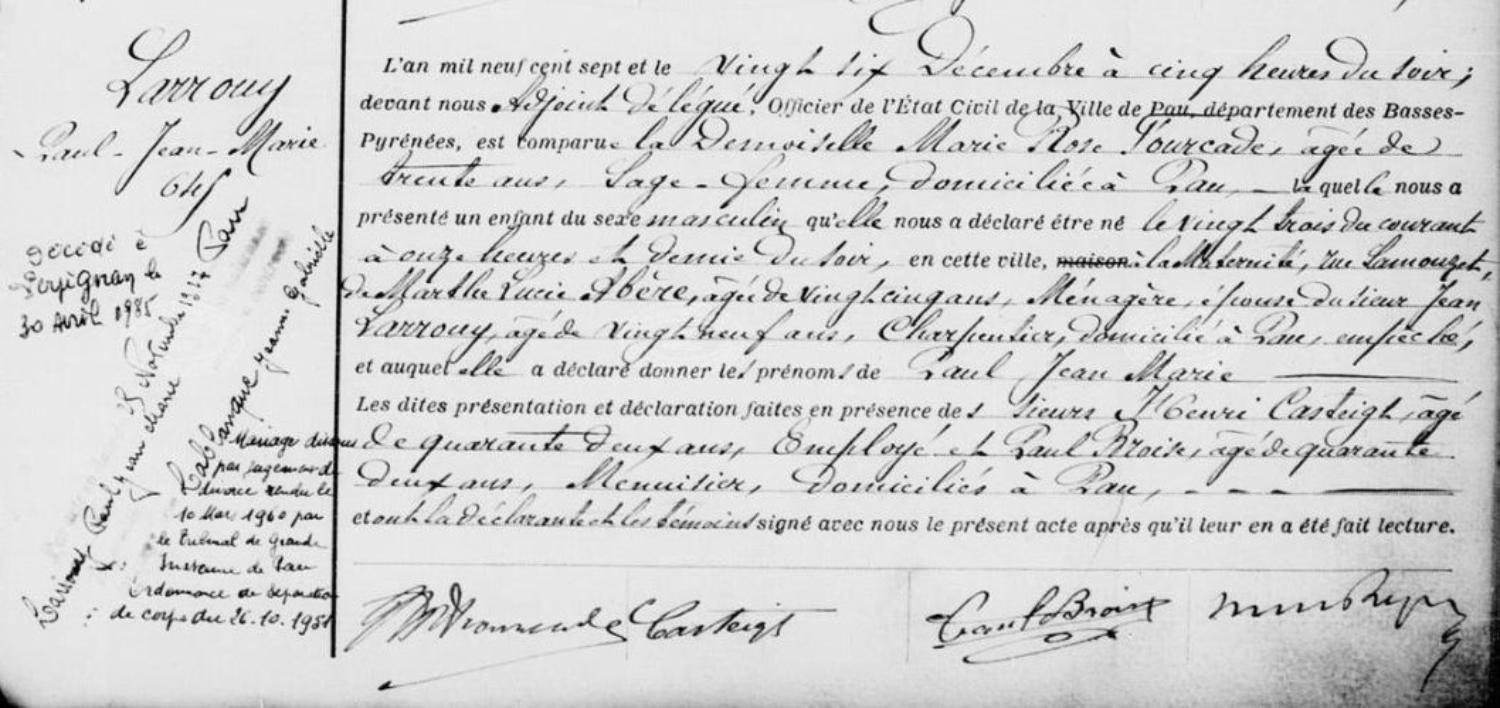 Larrouy
Paul - Jean - Marie
645
Décédé à
Perpignan le
30 Avril 1985
Larrouy Paul Jean Marie
Novembre 1937 Pau
Lablanque Jeanne Gabrielle
Mariage dissous
par jugement de
divorce rendu le
10 Mars 1960 par
le tribunal de Grande
Instance de Pau
Ordonnance de séparation
de corps du 26.10.1951
L'an mil neuf cent sept et le Vingt six Décembre à cinq heures du soir ;
devant nous Adjoint Délégué, Officier de l'État Civil de la Ville de Pau, département des Basses-
Pyrénées, est comparue la Demoiselle Marie Rose Fourcade, âgée de
trente ans, Sage-femme, domiciliée à Pau, — laquelle nous a
présenté un enfant du sexe masculin qu'elle nous a déclaré être né le vingt trois du courant
à onze heures et demie du soir, en cette ville, maison à la Maternité, rue Samonzet,
de Marthe Lucie Abère, âgée de vingt cinq ans, Ménagère, épouse du sieur Jean
Larrouy, âgé de vingt neuf ans, Charpentier, domicilié à Pau, empêché,
et auquel elle a déclaré donner les prénoms de Paul Jean Marie —
Les dites présentation et déclaration faites en présence des sieurs Henri Casteigt, âgé
de quarante deux ans, Employé et Paul Broise, âgé de quarante
deux ans, Menuisier, domiciliés à Pau, - - - —
et ont la déclarante et les témoins signé avec nous le présent acte après qu'il leur en a été fait lecture.
Casteigt Paul Broise